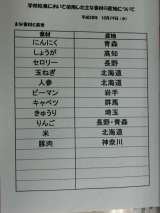 学校給食において使用した主な食材の産地について
平成28年 10月19日(水)
主な食材と産地
食材 産地
にんにく 青森
しょうが 高知
セロリー 長野
玉ねぎ 北海道
人参 北海道
ピーマン 岩手
キャベツ 群馬
きゅうり 埼玉
りんご 長野・青森
米 北海道
豚肉 神奈川